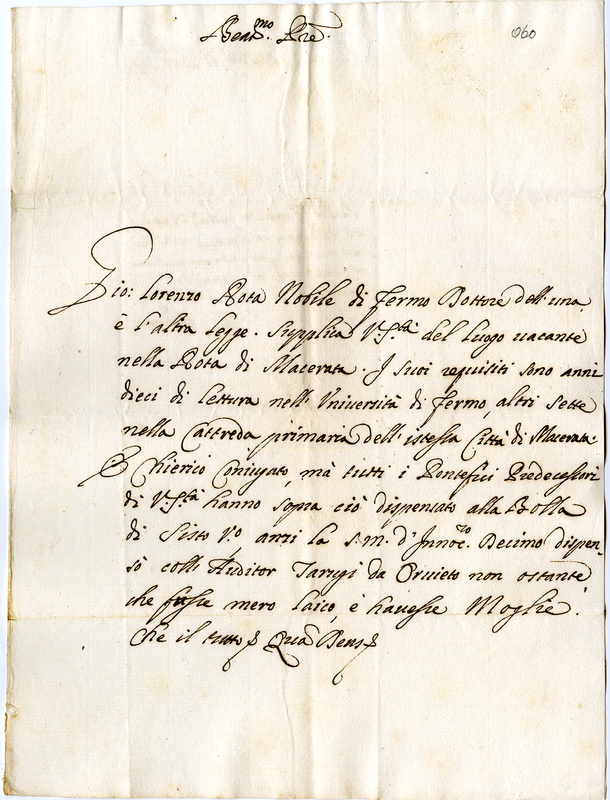 Beat.mo Pre.
060
Gio: Lorenzo Rota Nobile di Fermo Dottore dell'una,
è l'altra legge. Supplica V.S.tà del luogo vacante
nella Rota di Macerata. I suoi requisiti sono anni
dieci di lettura nell'Università di Fermo, altri sette
nella Cattreda primaria dell'istessa Città di Macerata.
È Chierico Coniugato, mà tutti i Pontefici Predecessori
di V.S.tà hanno sopra ciò dispensato alla Bolla
di Sisto V.o anzi la s.m. d'Innoc.zo Decimo dispen-
sò coll'Auditor Tarugi da Orvieto non ostante
che fusse mero laico, è havesse Moglie.
Che il tutto